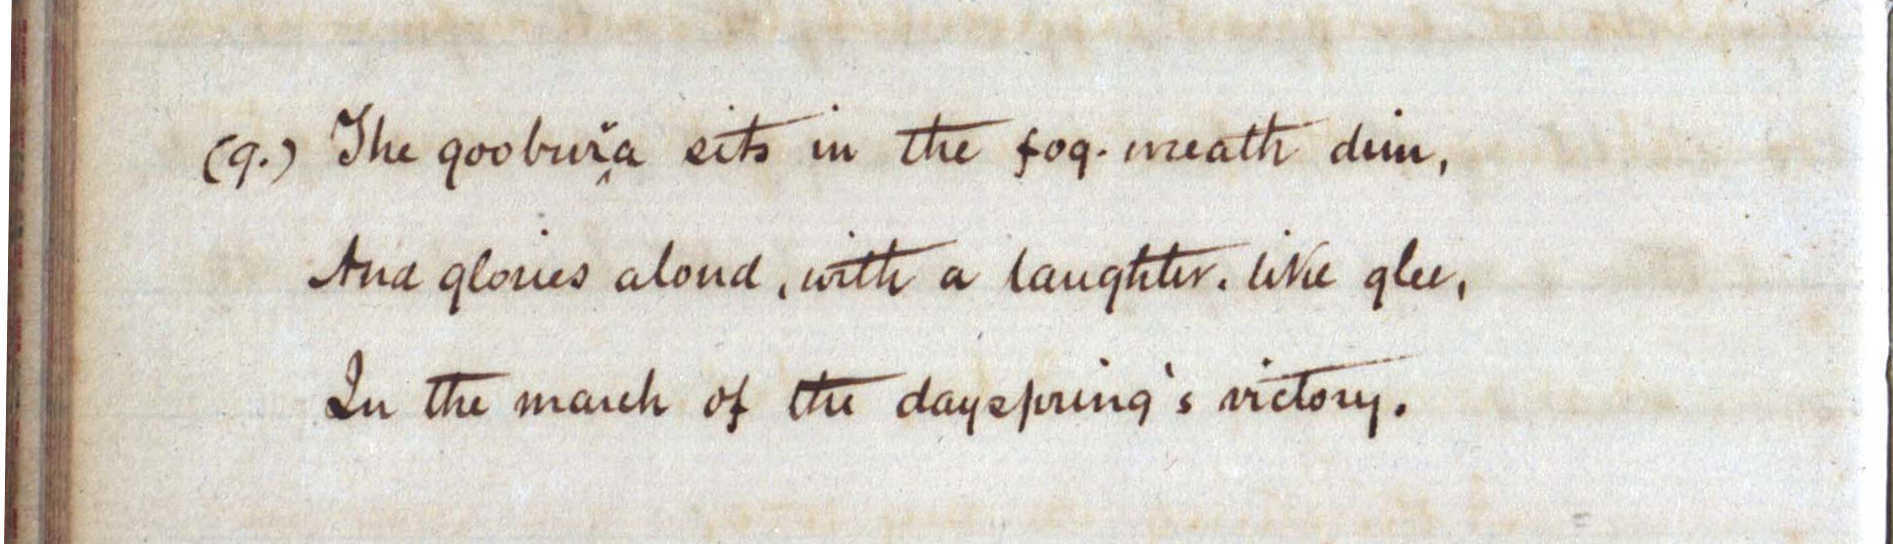 (9.) The gooburra sits in the fog-wreath dim,
And glories aloud, with a laughter-like glee,
In the march of the dayspring's victory.